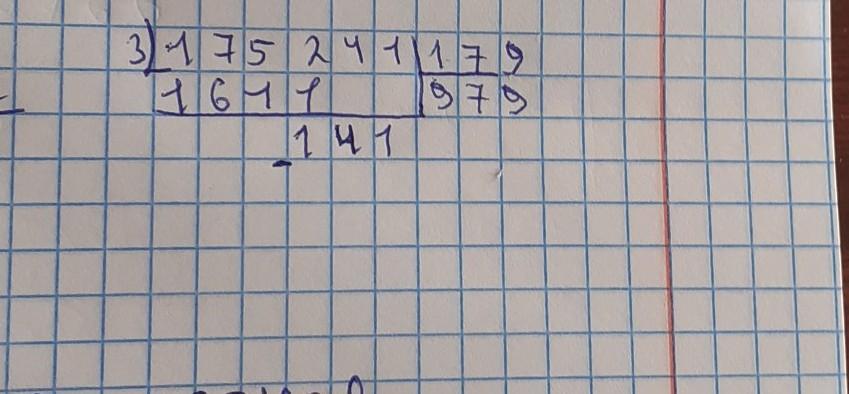 3) 175241 | 179
1611 | 979
- 141